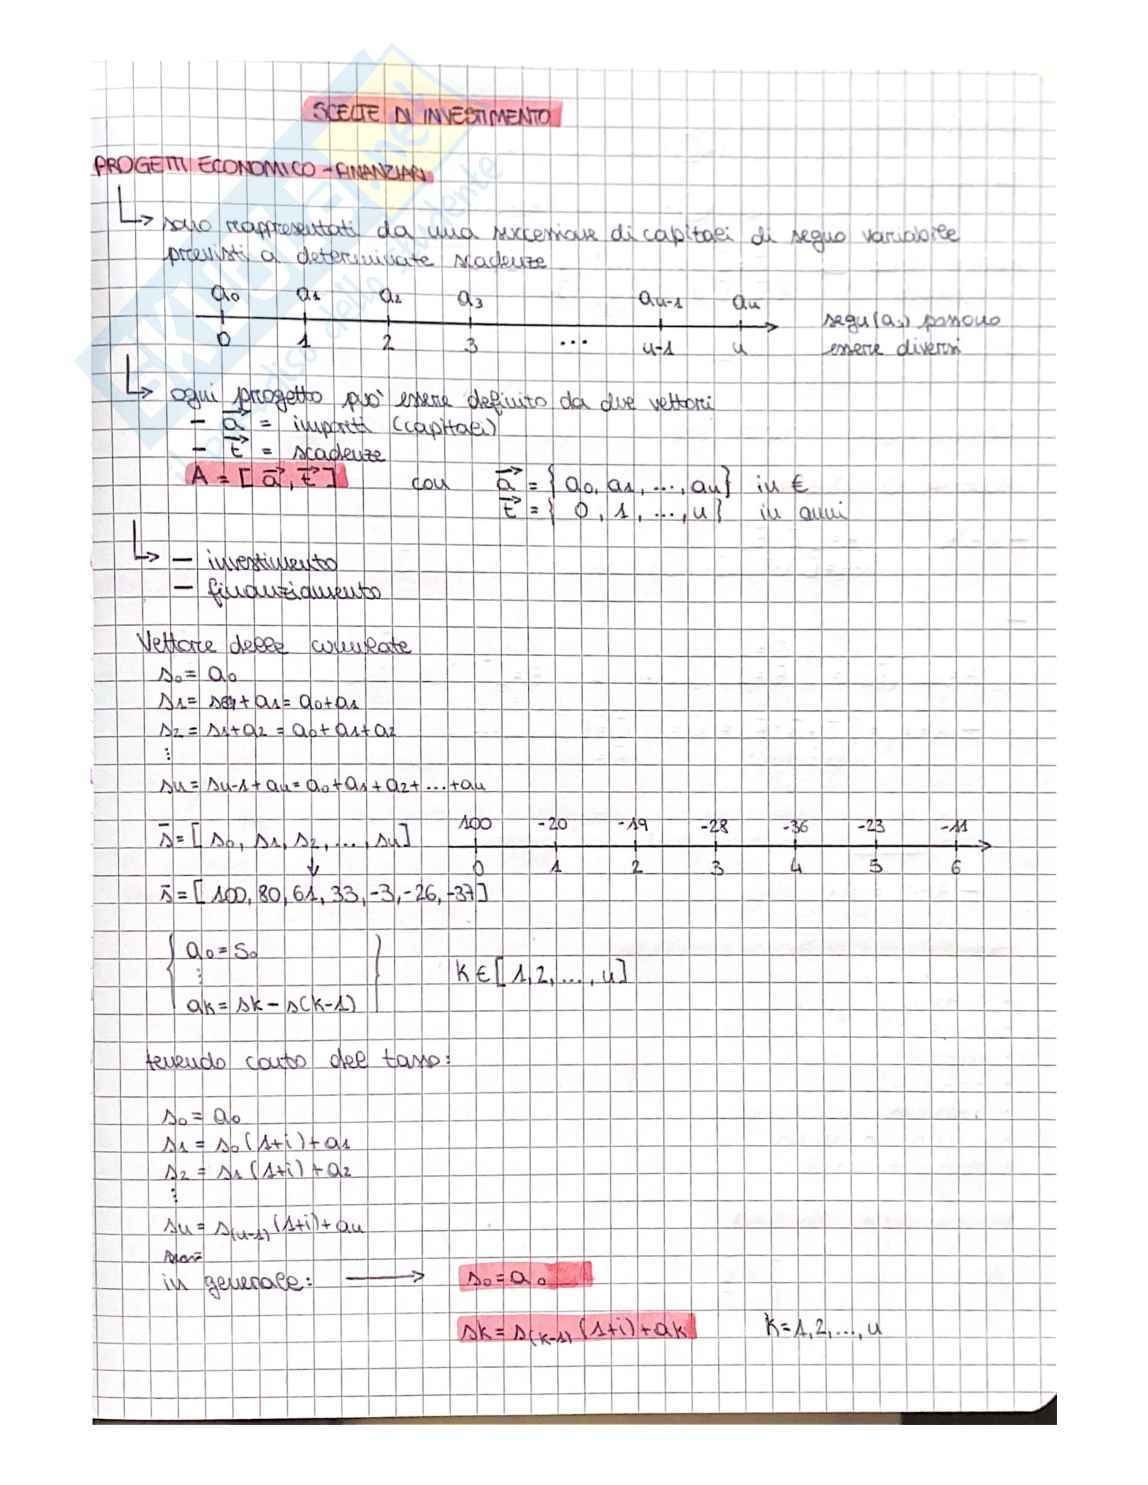 SCELTE DI INVESTIMENTO
PROGETTI ECONOMICO-FINANZIARI
↳ sono rappresentati da una successione di capitali di segno variabile
previsti a determinate scadenze
a₀ a₁ a₂ a₃ aₙ₋₁ aₙ
0 1 2 3 ... n-1 n
segni (aₛ) possono
essere diversi
↳ ogni progetto può essere definito da due vettori
- a⃗ = importi (capitali)
- t⃗ = scadenze
A = [a⃗, t⃗] con a⃗ = {a₀, a₁, ..., aₙ} in €
t⃗ = {0, 1, ..., n} in anni
↳ - investimento
- finanziamento
Vettore delle cumulate
s₀ = a₀
s₁ = s₀ + a₁ = a₀ + a₁
s₂ = s₁ + a₂ = a₀ + a₁ + a₂
⋮
sₙ = sₙ₋₁ + aₙ = a₀ + a₁ + a₂ + ... + aₙ
s̄ = [s₀, s₁, s₂, ..., sₙ]
100 -20 -19 -28 -36 -23 -11
0 1 2 3 4 5 6
s̄ = [100, 80, 61, 33, -3, -26, -37]
{ a₀ = s₀
⋮
ak = sk - s(k-1) }
K ∈ [1, 2, ..., n]
tenendo conto del tasso:
s₀ = a₀
s₁ = s₀(1+i) + a₁
s₂ = s₁(1+i) + a₂
⋮
sₙ = s₍ₙ₋₁₎(1+i) + aₙ
in generale: → s₀ = a₀
sk = s(k-1)(1+i) + ak K = 1, 2, ..., n